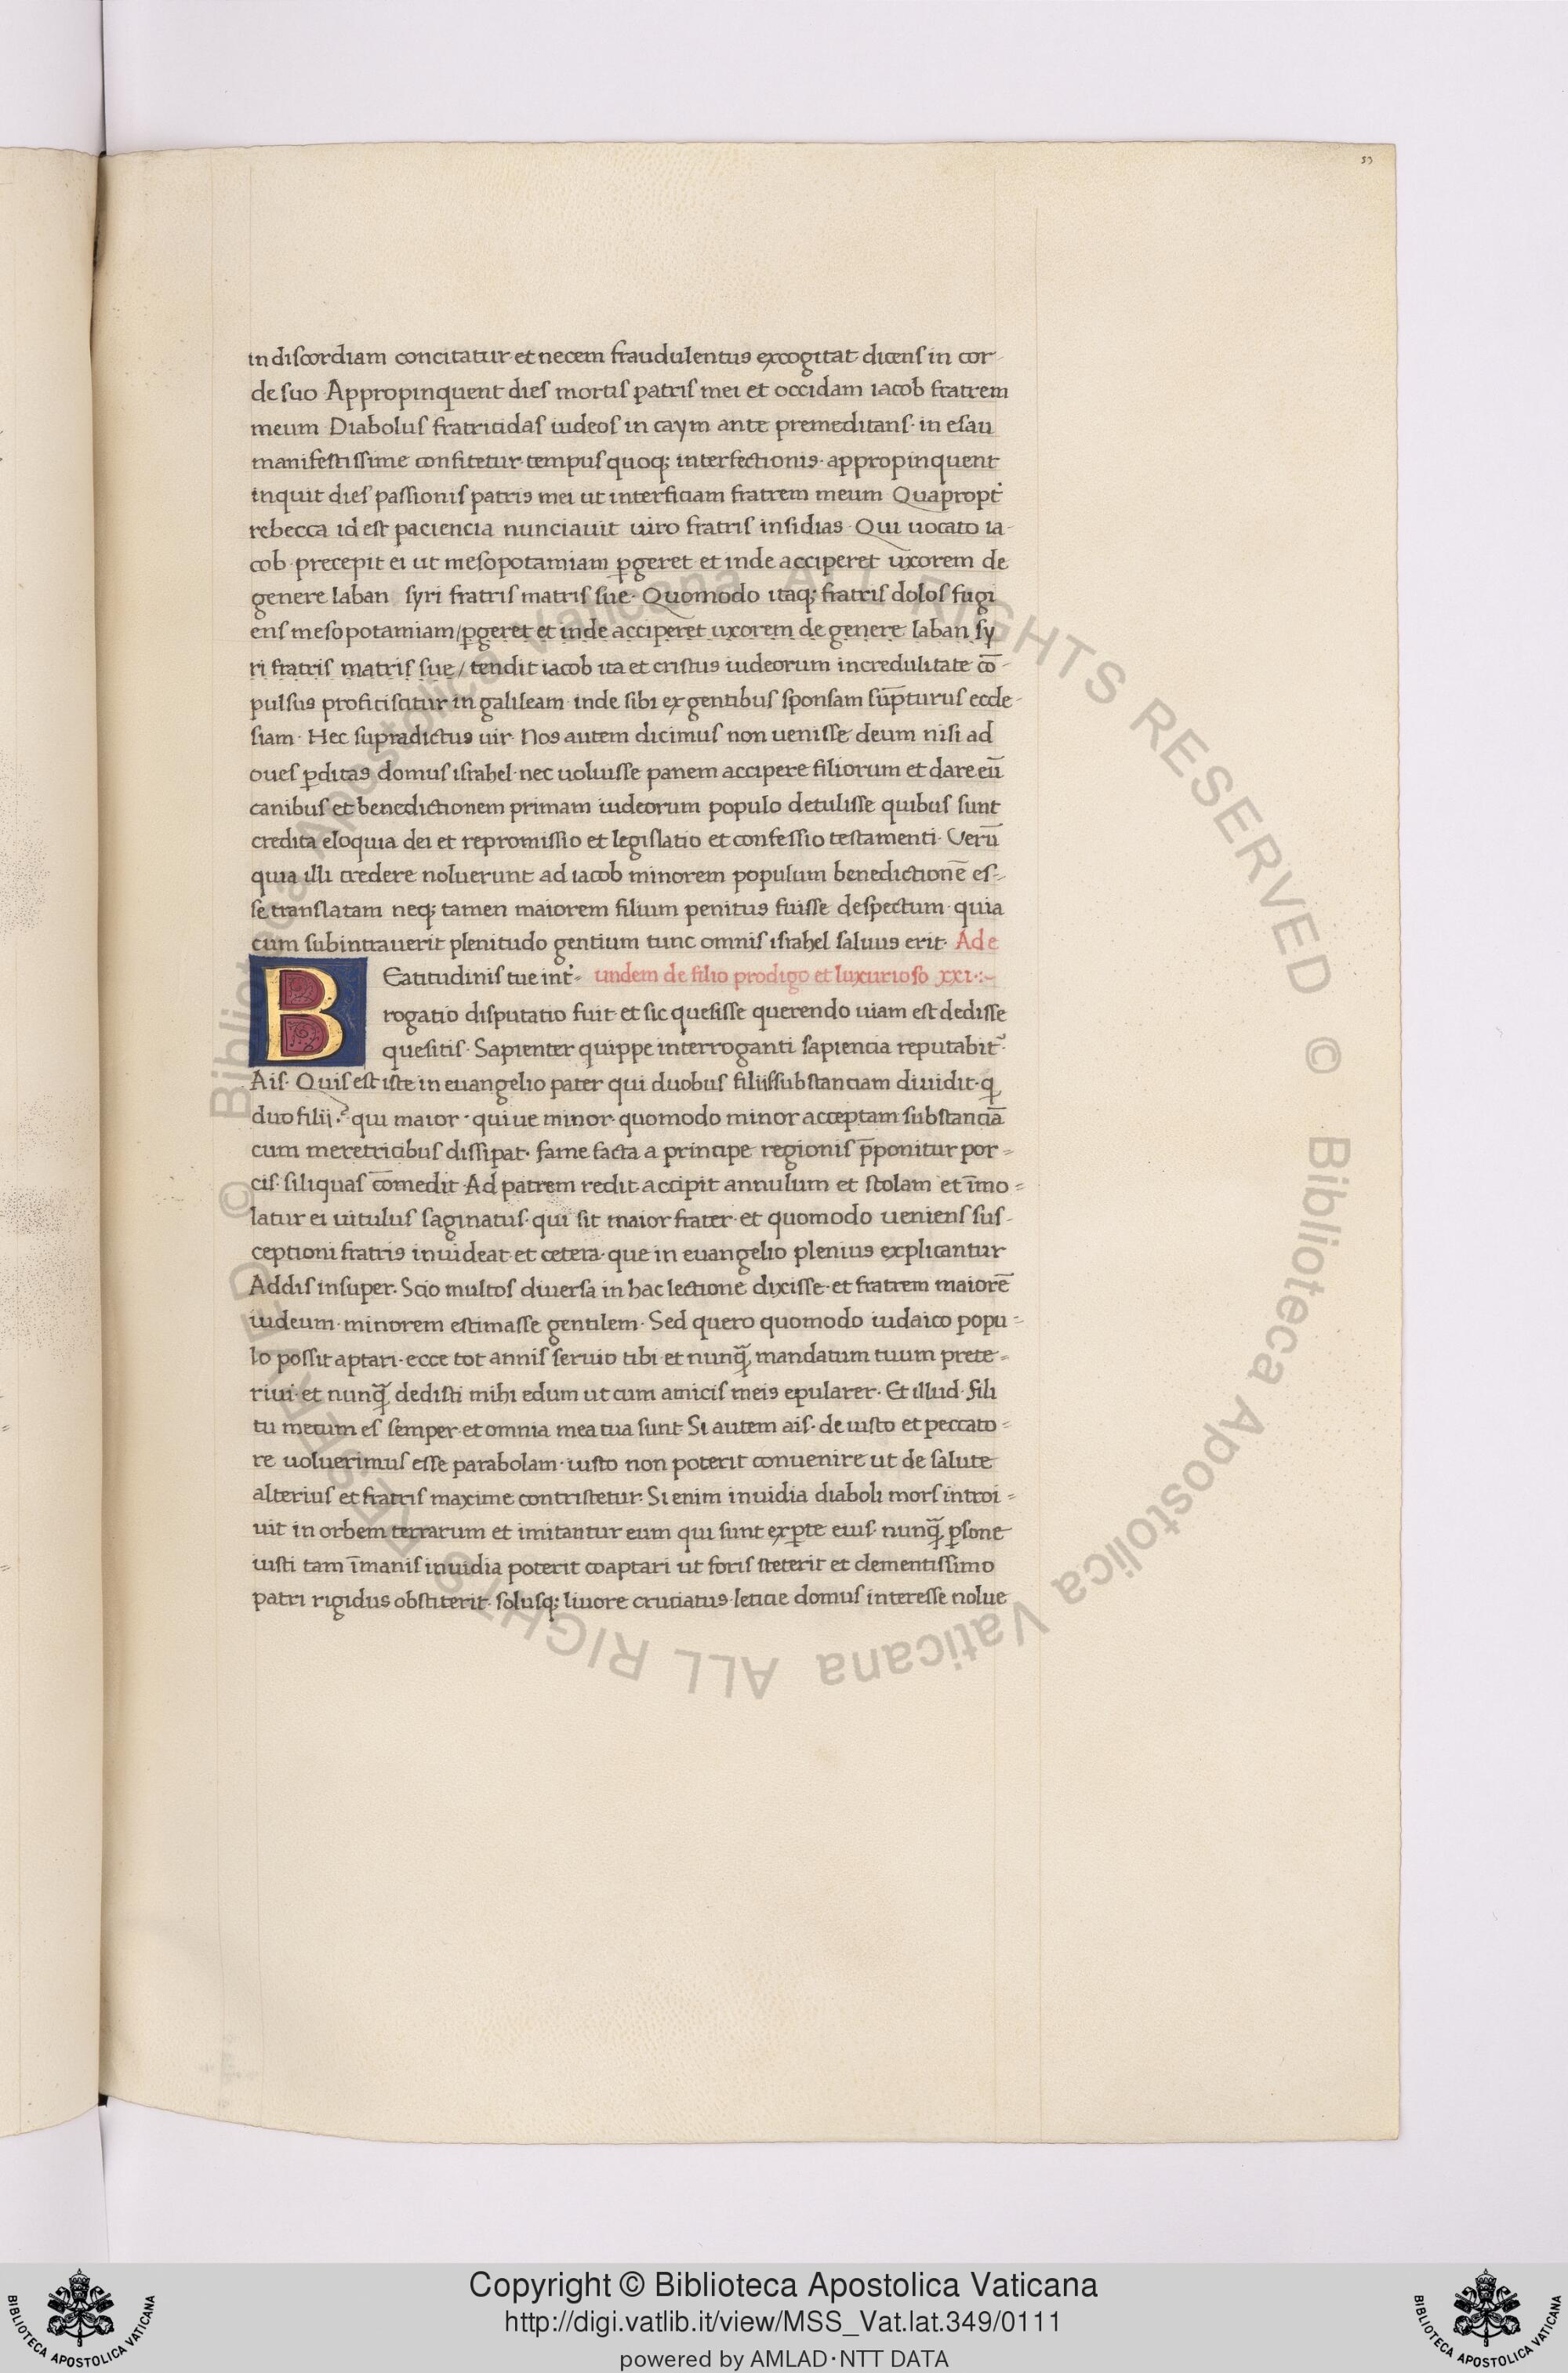 53
in discordiam concitatur et necem fraudulentus excogitat dicens in cor
de suo Appropinquent dies mortis patris mei et occidam iacob fratrem
meum Diabolus fratricidas iudeos in caym ante premeditans· in esau
manifestissime confitetur tempus quoq; interfectionis· appropinquent
inquit dies passionis patris mei ut interficiam fratrem meum Quapropt̉
rebecca id est paciencia nunciauit uiro fratris insidias· Qui uocato ia-
cob precepit ei ut mesopotamiam ꝑgeret et inde acciperet uxorem de
genere laban syri fratris matris sue· Quomodo itaq; fratris dolos fugi
ens mesopotamiam/ꝑgeret et inde acciperet uxorem de genere laban sy
ri fratris matris sue/ tendit iacob ita et cristus iudeorum incredulitate cō-
pulsus proficiscitur in galileam inde sibi ex gentibus sponsam sūpturus eccle-
siam· Hec supradictus uir· Nos autem dicimus non uenisse deum nisi ad
oues ꝑditas domus israhel· nec uoluisse panem accipere filiorum et dare eū
canibus et benedictionem primam iudeorum populo detulisse quibus sunt
credita eloquia dei et repromissio et legislatio et confessio testamenti· Verū
quia illi credere noluerunt ad iacob minorem populum benedictionē es-
se translatam neq; tamen maiorem filium penitus fuisse despectum· quia
cum subintrauerit plenitudo gentium tunc omnis israhel saluus erit· Ad e
BEatitudinis tue int̉- undem de filio prodigo et luxurioso xxi·:~
rogatio disputatio fuit et sic quesisse querendo uiam est dedisse
quesitis· Sapienter quippe interroganti sapiencia reputabit᷑·
Ais· Quis est iste in euangelio pater qui duobus filiis substanciam diuidit· q̨
duo filii? qui maior· qui ue minor· quomodo minor acceptam substanciā
cum meretricibus dissipat· fame facta a principe regionis p̄ponitur por-
cis· siliquas cōmedit Ad patrem redit accipit annulum et stolam et īmo-
latur ei uitulus saginatus· qui sit maior frater· et quomodo ueniens sus-
ceptioni fratris inuideat et cetera· que in euangelio plenius explicantur
Addis insuper· Scio multos diuersa in hac lectione dixisse· et fratrem maiorē
iudeum· minorem estimasse gentilem· Sed quero quomodo iudaico popu-
lo possit aptari· ecce tot annis seruio tibi et nunq̃ mandatum tuum prete-
riui· et nunq̃ dedisti mihi edum ut cum amicis meis epularer· Et illud· fili
tu mecum es semper et omnia mea tua sunt· Si autem ais· de iusto et peccato-
re uoluerimus esse parabolam· iusto non poterit conuenire ut de salute
alterius et fratris maxime contristetur· Si enim inuidia diaboli mors introi-
uit in orbem terrarum et imitantur eum qui sunt ex ꝑte eius· nunq̃ ꝑsone
iusti tam īmanis inuidia poterit coaptari ut foris steterit et clementissimo
patri rigidus obstiterit· solusq; liuore cruciatus leticie domus interesse nolue
© Biblioteca Apostolica Vaticana ALL RIGHTS RESERVED
© Biblioteca Apostolica Vaticana ALL RIGHTS RESERVED
Copyright © Biblioteca Apostolica Vaticana
http://digi.vatlib.it/view/MSS_Vat.lat.349/0111
powered by AMLAD·NTT DATA
BIBLIOTECA APOSTOLICA VATICANA
BIBLIOTECA APOSTOLICA VATICANA